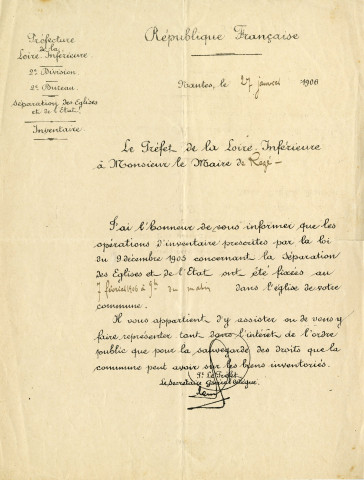 Préfecture
de la
Loire-Inférieure.
2e Division
2e Bureau.
Séparation des Eglises
et de l'Etat
Inventaire.
République Française
Nantes, le 27 janvier 1906
Le Préfet de la Loire-Inférieure
à Monsieur le Maire de Rezé
J'ai l'honneur de vous informer que les
opérations d'inventaire prescrites par la loi
du 9 décembre 1905 concernant la Séparation
des Eglises et de l'Etat ont été fixées au
7 février 1906 à 9h du matin dans l'église de votre
commune.
Il vous appartient d'y assister ou de vous y
faire représenter tant dans l'intérêt de l'ordre
public que pour la sauvegarde des droits que la
commune peut avoir sur les biens inventoriés.
Pr Le Préfet
Le Secrétaire Général délégué